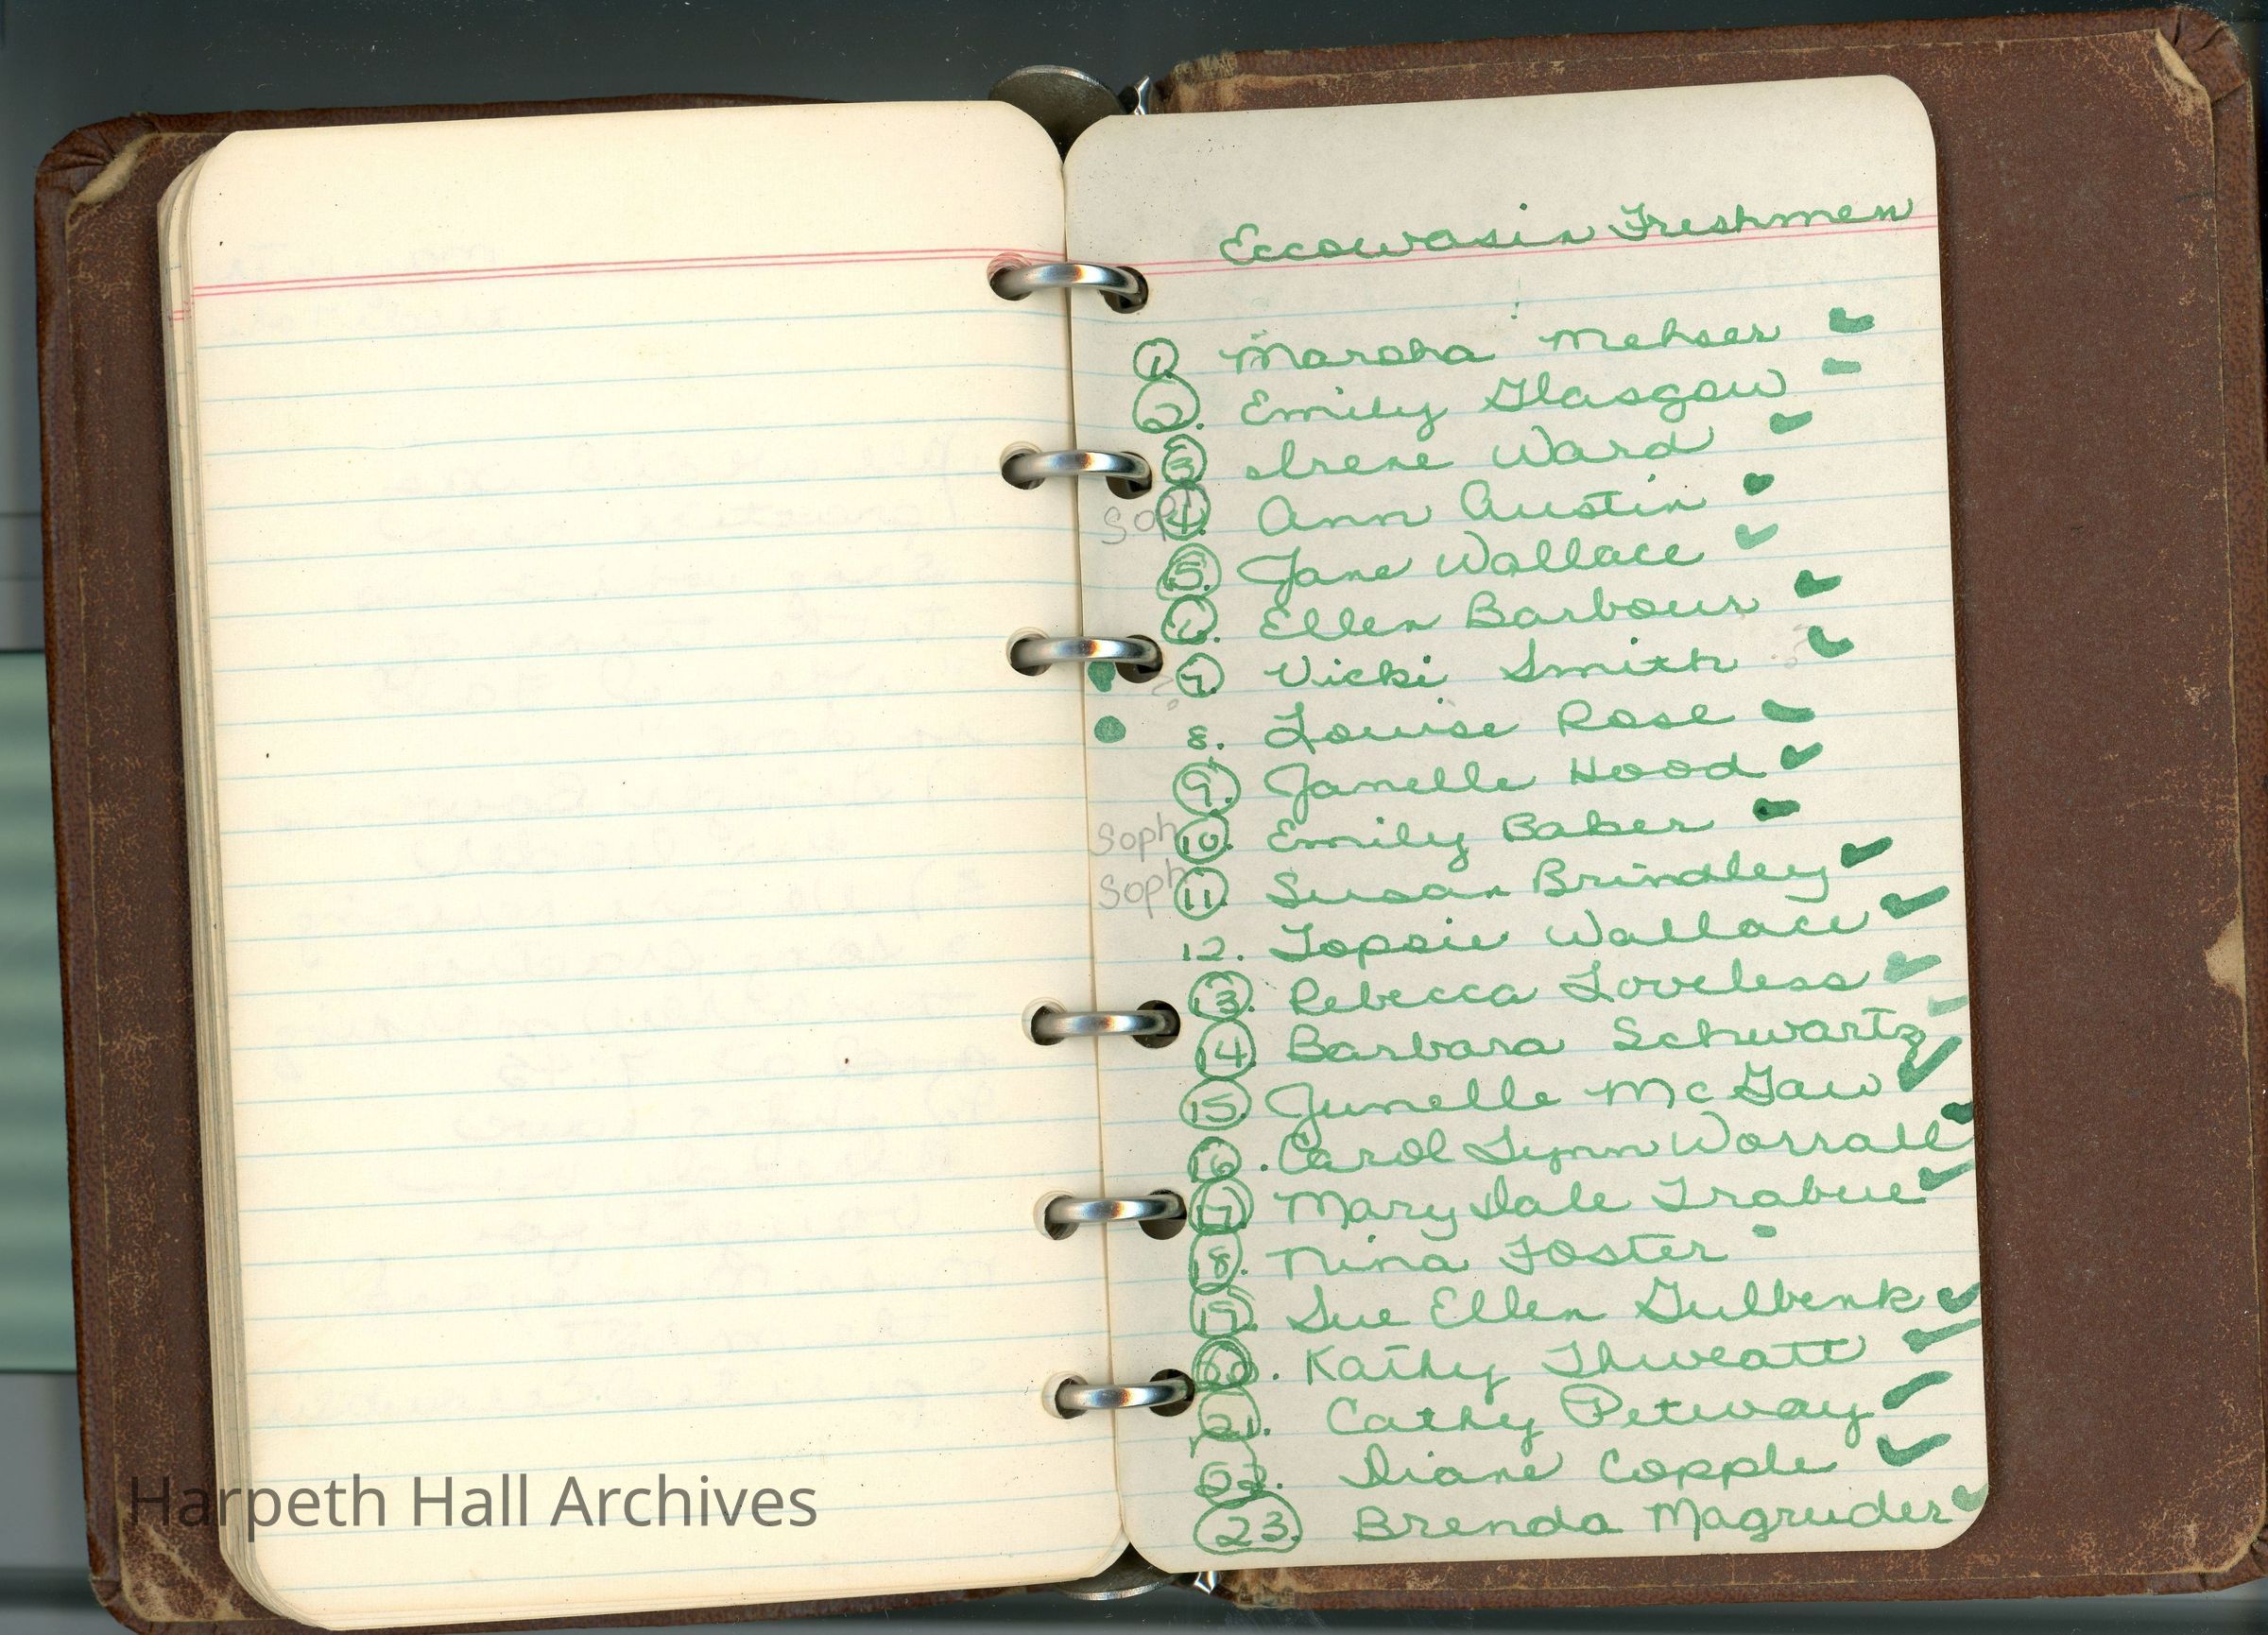 Eccowasin Freshmen
1. Marsha Mehser
2. Emily Glasgow
3. Irene Ward
Soph 4. Ann Austin
5. Jane Wallace
6. Ellen Barbour
? 7. Vicki Smith
8. Louise Rose
9. Janelle Hood
Soph 10. Emily Baker
Soph 11. Susan Brindley
12. Topsie Wallace
13. Rebecca Loveless
14. Barbara Schwartz
15. Junelle McGaw
16. Carol Lynn Worrall
17. Mary Dale Trabue
18. Nina Foster
19. Sue Ellen Gulbenk
20. Kathy Thweatt
21. Cathy Petway
22. Diane Copple
23. Brenda Magruder
Harpeth Hall Archives